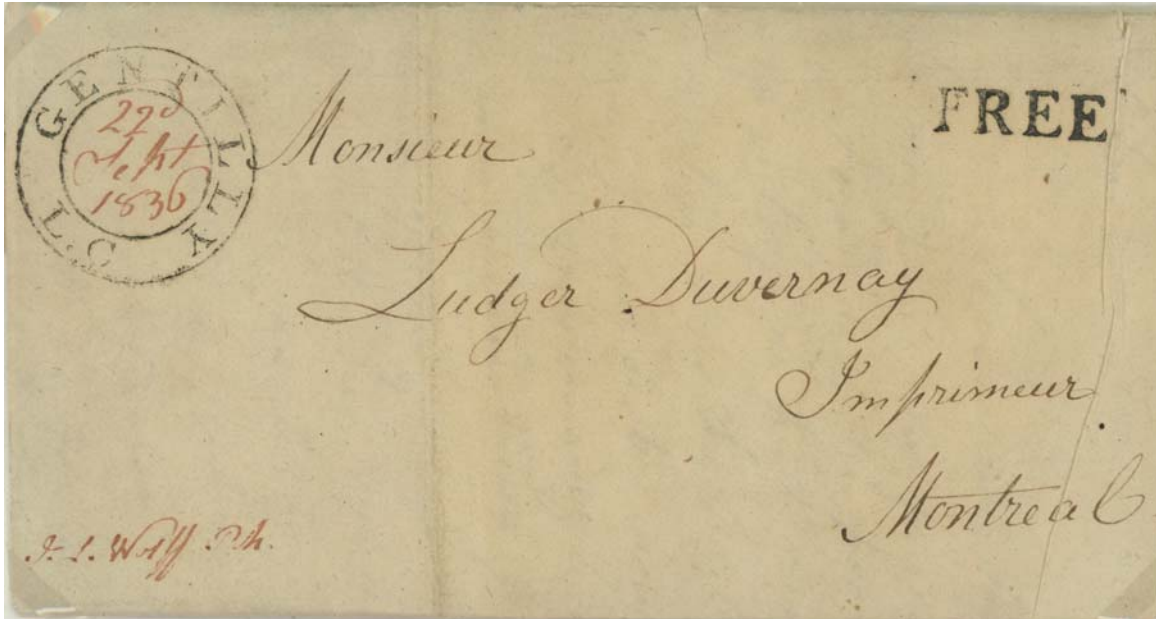 GENTILLY
L.C
22d
Sept
1836
FREE
Monsieur
Ludger Duvernay
Imprimeur
Montreal
Wolff P.M.